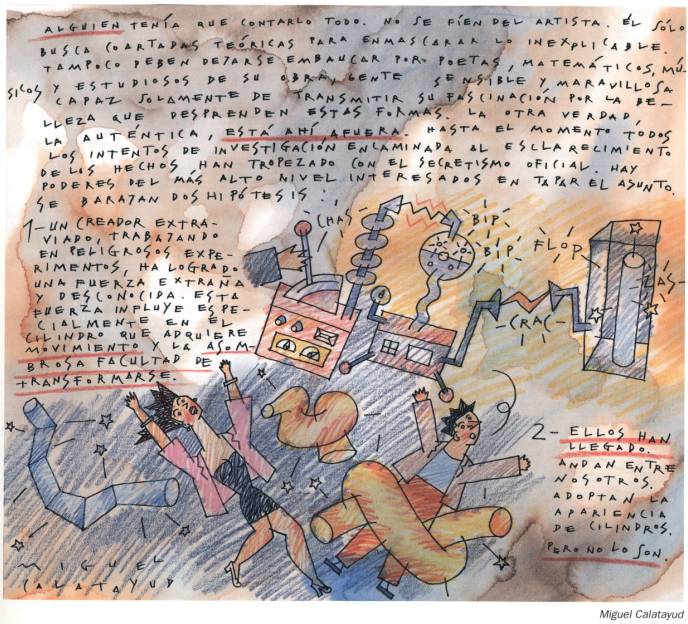 ALGUIEN TENÍA QUE CONTARLO TODO. NO SE FÍEN DEL ARTISTA. ÉL SÓLO
BUSCA COARTADAS TEÓRICAS PARA ENMASCARAR LO INEXPLICABLE.
TAMPOCO DEBEN DEJARSE EMBAUCAR POR POETAS, MATEMÁTICOS, MÚ-
SICOS Y ESTUDIOSOS DE SU OBRA, GENTE SENSIBLE Y MARAVILLOSA
CAPAZ SOLAMENTE DE TRANSMITIR SU FASCINACIÓN POR LA BE-
LLEZA QUE DESPRENDEN ESTAS FORMAS. LA OTRA VERDAD,
LA AUTÉNTICA, ESTÁ AHÍ, AFUERA. HASTA EL MOMENTO TODOS
LOS INTENTOS DE INVESTIGACIÓN ENCAMINADA AL ESCLARECIMIENTO
DE LOS HECHOS HAN TROPEZADO CON EL SECRETISMO OFICIAL. HAY
PODERES DEL MÁS ALTO NIVEL INTERESADOS EN TAPAR EL ASUNTO.
SE BARAJAN DOS HIPÓTESIS:
1- UN CREADOR EXTRA-
VIADO, TRABAJANDO
EN PELIGROSOS EXPE-
RIMENTOS, HA LOGRADO
UNA FUERZA EXTRAÑA
Y DESCONOCIDA. ESTA
FUERZA INFLUYE ESPE-
CIALMENTE EN EL
CILINDRO QUE ADQUIERE
MOVIMIENTO Y LA ASOM-
BROSA FACULTAD DE
TRANSFORMARSE.
CHAS
BIP
BIP
FLOP
-ZAS-
-CRAC-
2- ELLOS HAN
LLEGADO.
ANDAN ENTRE
NOSOTROS.
ADOPTAN LA
APARIENCIA
DE CILINDROS.
PERO NO LO SON.
MIGUEL
CALATAYUD
Miguel Calatayud